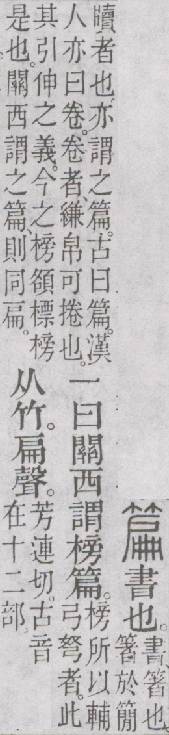 篇書也。
書箸也
箸於簡
牘者也。亦謂之篇。古曰篇。漢
人亦曰卷。卷者、縑帛可捲也。
一曰關西謂榜篇。
榜所以輔
弓弩者。此
其引伸之義。今之榜領標榜
是也。關西謂之篇。則同扁。
从竹。扁聲。
芳連切。古音
在十二部。